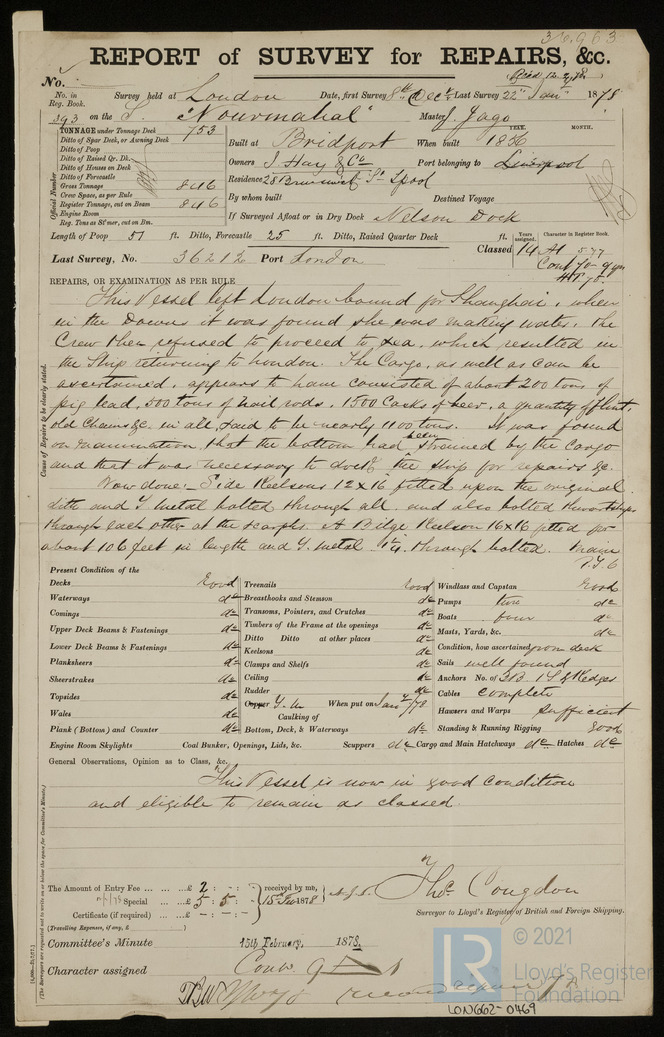 36,963
REPORT of SURVEY for REPAIRS, &c.
No.
No. in Reg. Book. Survey held at London Date, first Survey 8th Decr Last Survey 22nd Jany 1878
393 on the S. "Nourmahal" Master J. Jago
TONNAGE under Tonnage Deck 753
Ditto of Spar Deck, or Awning Deck
Ditto of Poop
Ditto of Raised Qr. Dk.
Ditto of Houses on Deck
Ditto of Forecastle
Gross Tonnage 846
Crew Space, as per Rule
Register Tonnage, cut on Beam 846
Engine Room
Reg. Tons as St'mer, cut on Bm.
Official Number
Built at Bridport When built YEAR. 1856 MONTH.
Owners J. Hay & Co Port belonging to Liverpool
Residence 28 Brunswick St Lpool
By whom built Destined Voyage
If Surveyed Afloat or in Dry Dock Nelson Dock
Length of Poop 51 ft. Ditto, Forecastle 25 ft. Ditto, Raised Quarter Deck ft.
Classed Years assigned. 14 Character in Register Book. A1 5-77
Cont 70-9 yrs
Last Survey, No. 36212 Port London
REPAIRS, OR EXAMINATION AS PER RULE
Cause of Repairs to be clearly stated.
This Vessel left London bound for Shanghai, when
in the Downs it was found she was making water, the
Crew then refused to proceed to sea, which resulted in
the Ship returning to London. The Cargo, as well as can be
ascertained, appears to have consisted of about 200 tons of
pig lead, 500 tons of nail rods, 1500 Casks of beer, a quantity of flint,
old Chains &c. in all, said to be nearly 1100 tons. It was found
on examination, that the bottom had been strained by the cargo
and that it was necessary to dock the ship for repairs &c.
Now done:- Side Keelsons 12 x 16 fitted upon the original
with and Y metal bolted through all and also bolted thwartships
through each other at the scarphs. A Bilge Keelson 16x16 fitted for
about 106 feet in length and Y. metal through bolted. Main
P.T.O
Present Condition of the
Decks Good Treenails Good Windlass and Capstan Good
Waterways do Breasthooks and Stemson do Pumps two do
Comings do Transoms, Pointers, and Crutches do Boats four do
Upper Deck Beams & Fastenings do Timbers of the Frame at the openings do Masts, Yards, &c. do
Lower Deck Beams & Fastenings do Ditto Ditto at other places do Condition, how ascertained from deck
Planksheers do Keelsons do Sails well found
Sheerstrakes do Clamps and Shelfs do Anchors No. of 3B 1S & Kedges
Topsides do Ceiling do Cables complete
Wales do Rudder do Hawsers and Warps sufficient
Copper Y.M. When put on Jany /78
Plank (Bottom) and Counter do Caulking of Bottom, Deck, & Waterways do Standing & Running Rigging Good
Engine Room Skylights Coal Bunker, Openings, Lids, &c. Scuppers do Cargo and Main Hatchways do Hatches do
General Observations, Opinion as to Class, &c.
This Vessel is now in good condition
and eligible to remain as classed.
The Amount of Entry Fee ... ... ... £ 2 : - : - received by me,
Special ... ... £ 5 : 5 : - 15th Feb 1878
Certificate (if required) ... £ - : - : -
(Travelling Expenses, if any, £ )
Thos. Congdon
Surveyor to Lloyd's Register of British and Foreign Shipping.
Committee's Minute 15th February, 1878.
Character assigned
(The Surveyors are requested not to write on or below the space for Committee's Minute.)
LR
© 2021
Lloyd's Register
Foundation
LON662-0469